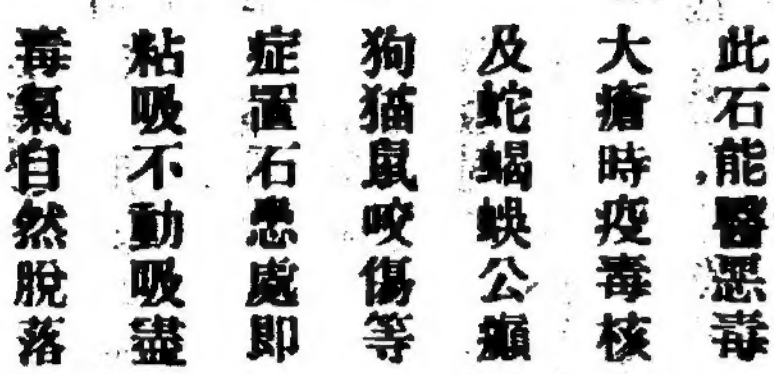 此石能醫惡毒
大瘡時疫毒核
及蛇蝎蜈公癲
狗猫鼠咬傷等
症置石患處即
粘吸不動吸盡
毒氣自然脫落